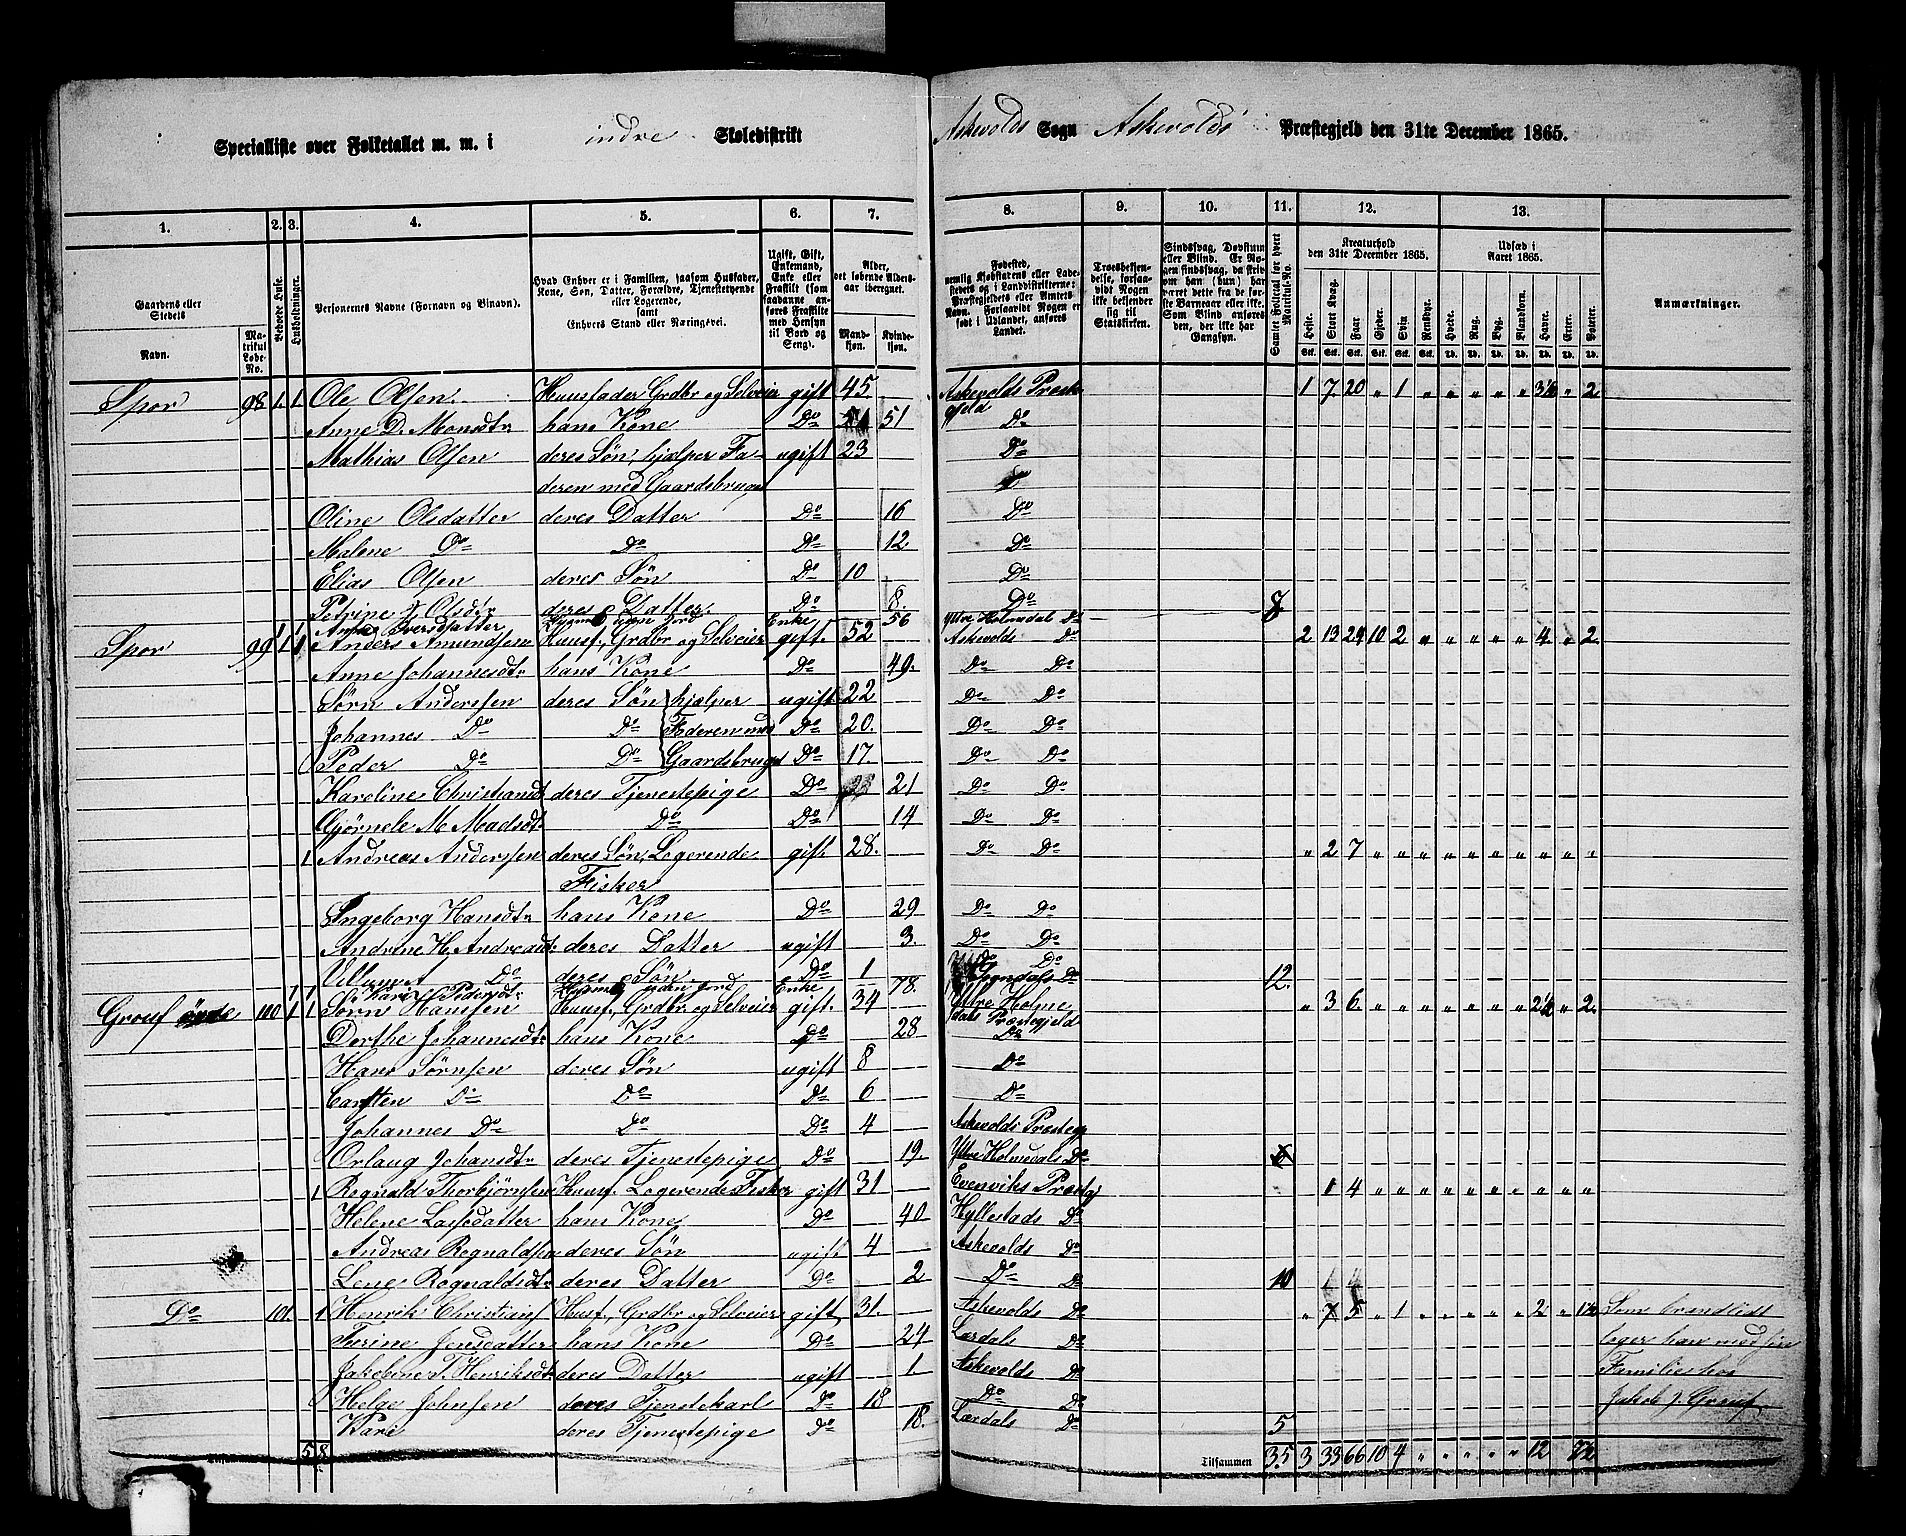 Specialliste over Folketallet m. m. i indre Skoledistrikt Askevolds Sogn Askevolds Præstegjeld den 31te December 1865.
1. 2. 3. 4. 5. 6. 7. 8. 9. 10. 11. 12. 13.
Gaardens eller Stedets Navn. Matrikul Løbe-No. Beboede Huse. Husholdninger. Personernes Navne (Fornavn og Binavn). Hvad Enhver er i Familien, saasom Husfader, Kone, Søn, Datter, Forældre, Tjenestetyende eller Logerende, samt Enhvers Stand eller Næringsvei. Ugift, Gift, Enkemand, Enke eller Fraskilt (som saadanne anføres Fraskilte med Hensyn til Bord og Seng). Alder, det løbende Aldersaar iberegnet. Mandkjøn. Kvindekjøn.
Fødested, nemlig Kjøbstadens eller Ladestedets og i Landdistrikterne: Præstegjeldets eller Amtets Navn. Forsaavidt Nogen er født i Udlandet, anføres Landet. Troesbekjendelse, forsaavidt Nogen ikke bekjender sig til Statskirken. Sindssvag, Døvstum eller Blind. Samlet Folketal for hvert Matrikul-No. Kreaturhold den 31te December 1865. Udsæd i Aaret 1865. Anmærkninger.
Heste. Stort Kvæg. Faar. Gjeder. Svin. Rensdyr. Hvede. Rug. Byg. Blandkorn. Havre. Erter. Poteter.
Spor 98 1 1 Ole Olsen Huusfader Grdbr og Selveier gift 45 Askevolds Præstegjeld 1 7 20 " 1 " " " " " 3½ " 2
Anne D. Monsdtr hans Kone Do 51 Do
Mathias Olsen deres Søn, hjælper Fa- ugift 23 Do
deren med Gaardsbruget
Oline Olsdatter deres Datter Do 16 Do
Malene Do Do Do 12 Do
Elias Olsen deres Søn Do 10 Do
Petrine J. Olsdtr deres Datter Do 8. Do
Anne Iversdatter Enke 56 Ytre Holmedal Do
Spor 99 1 1 Anders Amundsen Huusf., Grdbr og Selveier gift 52 Askevolds Do 2 13 24 10 2 " " " " " 4 " 2
Anne Johannesdtr hans Kone Do 49. Do Do
Sørn Andersen deres Søn hjælper ugift 22 Do Do
Johannes Do Do Faderen med Do 20. Do Do
Peder Do Do Gaardsbruget Do 17. Do Do
Karoline Christiansdt deres Tjenestepige Do 21 Do Do
M. Madsdt. Do Do 14 Do Do
1 Andreas Andersen deres Søn, Logerende gift 28. Do Do " 2 7 " " " " " " " " " "
Fisker
Ingeborg Hansdtr hans Kone Do 29 Do Do
Andrine H. Andreasdt. deres Datter ugift 3. Do Do
Do deres Søn Do 1 Do Do 12.
Kari Pedersdt. Enke 78. Sogndals Do
Grouf øvre 100 1 1 Sørn Hansen Huusf., Grdbr og Selveier gift 34 Yttre Holmedals Præstegjeld " 3 6 " " " " " " " 2½ " 2
Dorthe Johannesdt. hans Kone Do 28 Do
Hans Sørnsen deres Søn ugift 8 Do
Carsten Do Do Do 6 Do
Johannes Do Do Do 4 Askevolds Præsteg
Orlaug Johansdtr deres Tjenestepige Do 19. Ytre Holmedals Do
1 Rognald Thorbjørnsen Huusf. Logerende Fisker gift 31 Evenviks Præstg " 1 4 " " " " " " " " " "
Helene Lassedatter hans Kone Do 40 Hyllestads Do
Andreas Rognaldsen deres Søn ugift 4 Askevolds Do
Lene Rognaldsdtr deres Datter Do 2 Do Do 10
Do 101. 1 Henrik Christians. Huusf., Grdbr og Selveier gift 31. Askevolds Do " 7 5 " 1 " " " " " 2 " 1½ Som brandlidt
Jensdatter hans Kone Do 24 Lærdals Do loger han med sin
Jakobine T. Henriksdt deres Datter ugift 1. Askevolds Do Familie hos
Helge Johnsen deres Tjenestekarl Do 18 Do Do Jakob J. Grouf
Kari deres Tjenestepige Do 18. Lærdals Do 5
5 8 Tilsammen 35 3 33 66 10 4 " " " " " 12 7½